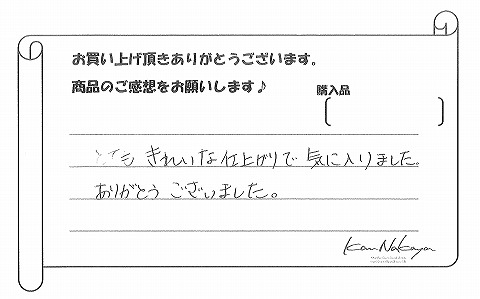 お買い上げ頂きありがとうございます。
商品のご感想をお願いします♪
購入品
とても きれいな仕上がりで 気に入りました。
ありがとう ございました。